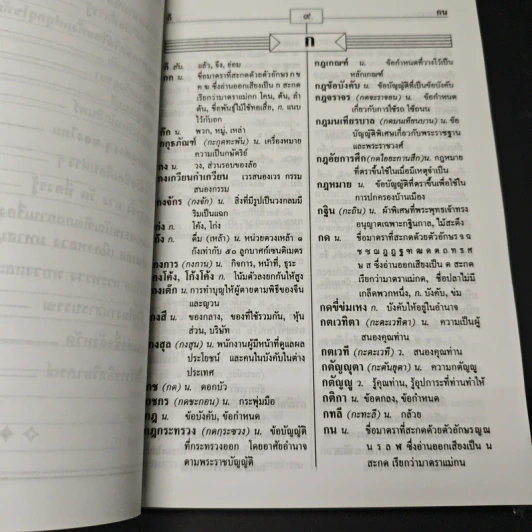 ๙
กน
ก
ก็ สัน. แล้ว, จึง, ย่อม
กก น. ชื่อมาตราที่สะกดด้วยตัวอักษร ก ข
ค ฆ ซึ่งอ่านออกเสียงเป็น ก สะกด
เรียกว่ามาตราแม่กก โคน, ต้น, ลำ
ต้น, ชื่อพันธุ์ไม้ใช้ทอเสื่อ, ก. แนบ
ไว้กับอก
ก๊ก น. พวก, หมู่, เหล่า
กกุธภัณฑ์ (กะกุดทะพัน) น. เครื่องหมาย
ความเป็นกษัตริย์
กง น. วง, ส่วนรอบของล้อ
กงเกวียนกำเกวียน เวรสนองเวร กรรม
สนองกรรม
กงจักร (กงจัก) น. สิ่งที่มีรูปเป็นวงกลมมี
ริมเป็นแฉก
ก่ง ก. โค้ง, โก่ง
กงการ (กงกาน) น. กิจการ, หน้าที่, ธุระ
กงโค้ง, โก้งโค้ง ก. โน้มตัวลงยกก้นให้สูง
กงเต๊ก น. การทำบุญให้ผู้ตายตามพิธีของจีน
และญวน
กงสี น. ของกลาง, ของที่ใช้รวมกัน, หุ้น
ส่วน, บริษัท
กงสุล (กงสุน) น. พนักงานผู้มีหน้าที่ดูแลผล
ประโยชน์ และคนในบังคับในต่าง
ประเทศ
กช (กด) น. ดอกบัว
กชกร (กดชะกอน) น. กระพุ่มมือ
กฎ น. ข้อบังคับ, ข้อกำหนด
กฎกระทรวง (กดกฺระซวง) น. ข้อบัญญัติ
ที่กระทรวงออก โดยอาศัยอำนาจ
ตามพระราชบัญญัติ
กฎเกณฑ์ น. ข้อกำหนดที่วางไว้เป็น
หลักเกณฑ์
กฎข้อบังคับ น. ข้อบัญญัติที่เป็นข้อบังคับ
กฎจราจร (กดจะราจอน) น. ข้อกำหนด
เกี่ยวกับการใช้รถ ใช้ถนน
กฎมนเทียรบาล (กดมนเทียนบาน) น. ข้อ
บัญญัติพิเศษเกี่ยวกับพระราชฐาน
และพระราชวงศ์
กฎอัยการศึก (กดไอยะการสึก) น. กฎหมาย
ที่ตราขึ้นใช้ในเมื่อมีเหตุจำเป็น
กฎหมาย น. ข้อบัญญัติที่ตราขึ้นเพื่อใช้ใน
การปกครองบ้านเมือง
กฐิน (กะถิน) น. ผ้าพิเศษที่พระพุทธเจ้าทรง
อนุญาตเฉพาะกฐินกาล, ไม้สะดึง
กด น. ชื่อมาตราที่สะกดด้วยตัวอักษร จ
ช ซ ฎ ฏ ฐ ฑ ฒ ด ต ถ ท ธ ศ
ษ ส ซึ่งอ่านออกเสียงเป็น ด สะกด
เรียกว่ามาตราแม่กด, ชื่อปลาไม่มี
เกล็ดพวกหนึ่ง, ก. บังคับ, ข่ม
กดขี่ข่มเหง ก. บังคับให้อยู่ในอำนาจ
กตเวทิตา (กะตะเวทิตา) น. ความเป็นผู้
สนองคุณท่าน
กตเวที (กะตะเวที) ว. สนองคุณท่าน
กตัญญุตา (กะตันยุตา) น. ความกตัญญู
กตัญญู ว. รู้คุณท่าน, รู้อุปการะที่ท่านทำให้
กติกา น. ข้อตกลง, ข้อกำหนด
กทลี (กะทะลี) น. กล้วย
กน น. ชื่อมาตราที่สะกดด้วยตัวอักษร ญ ณ
น ร ล ฬ ซึ่งอ่านออกเสียงเป็น น
สะกด เรียกว่ามาตราแม่กน